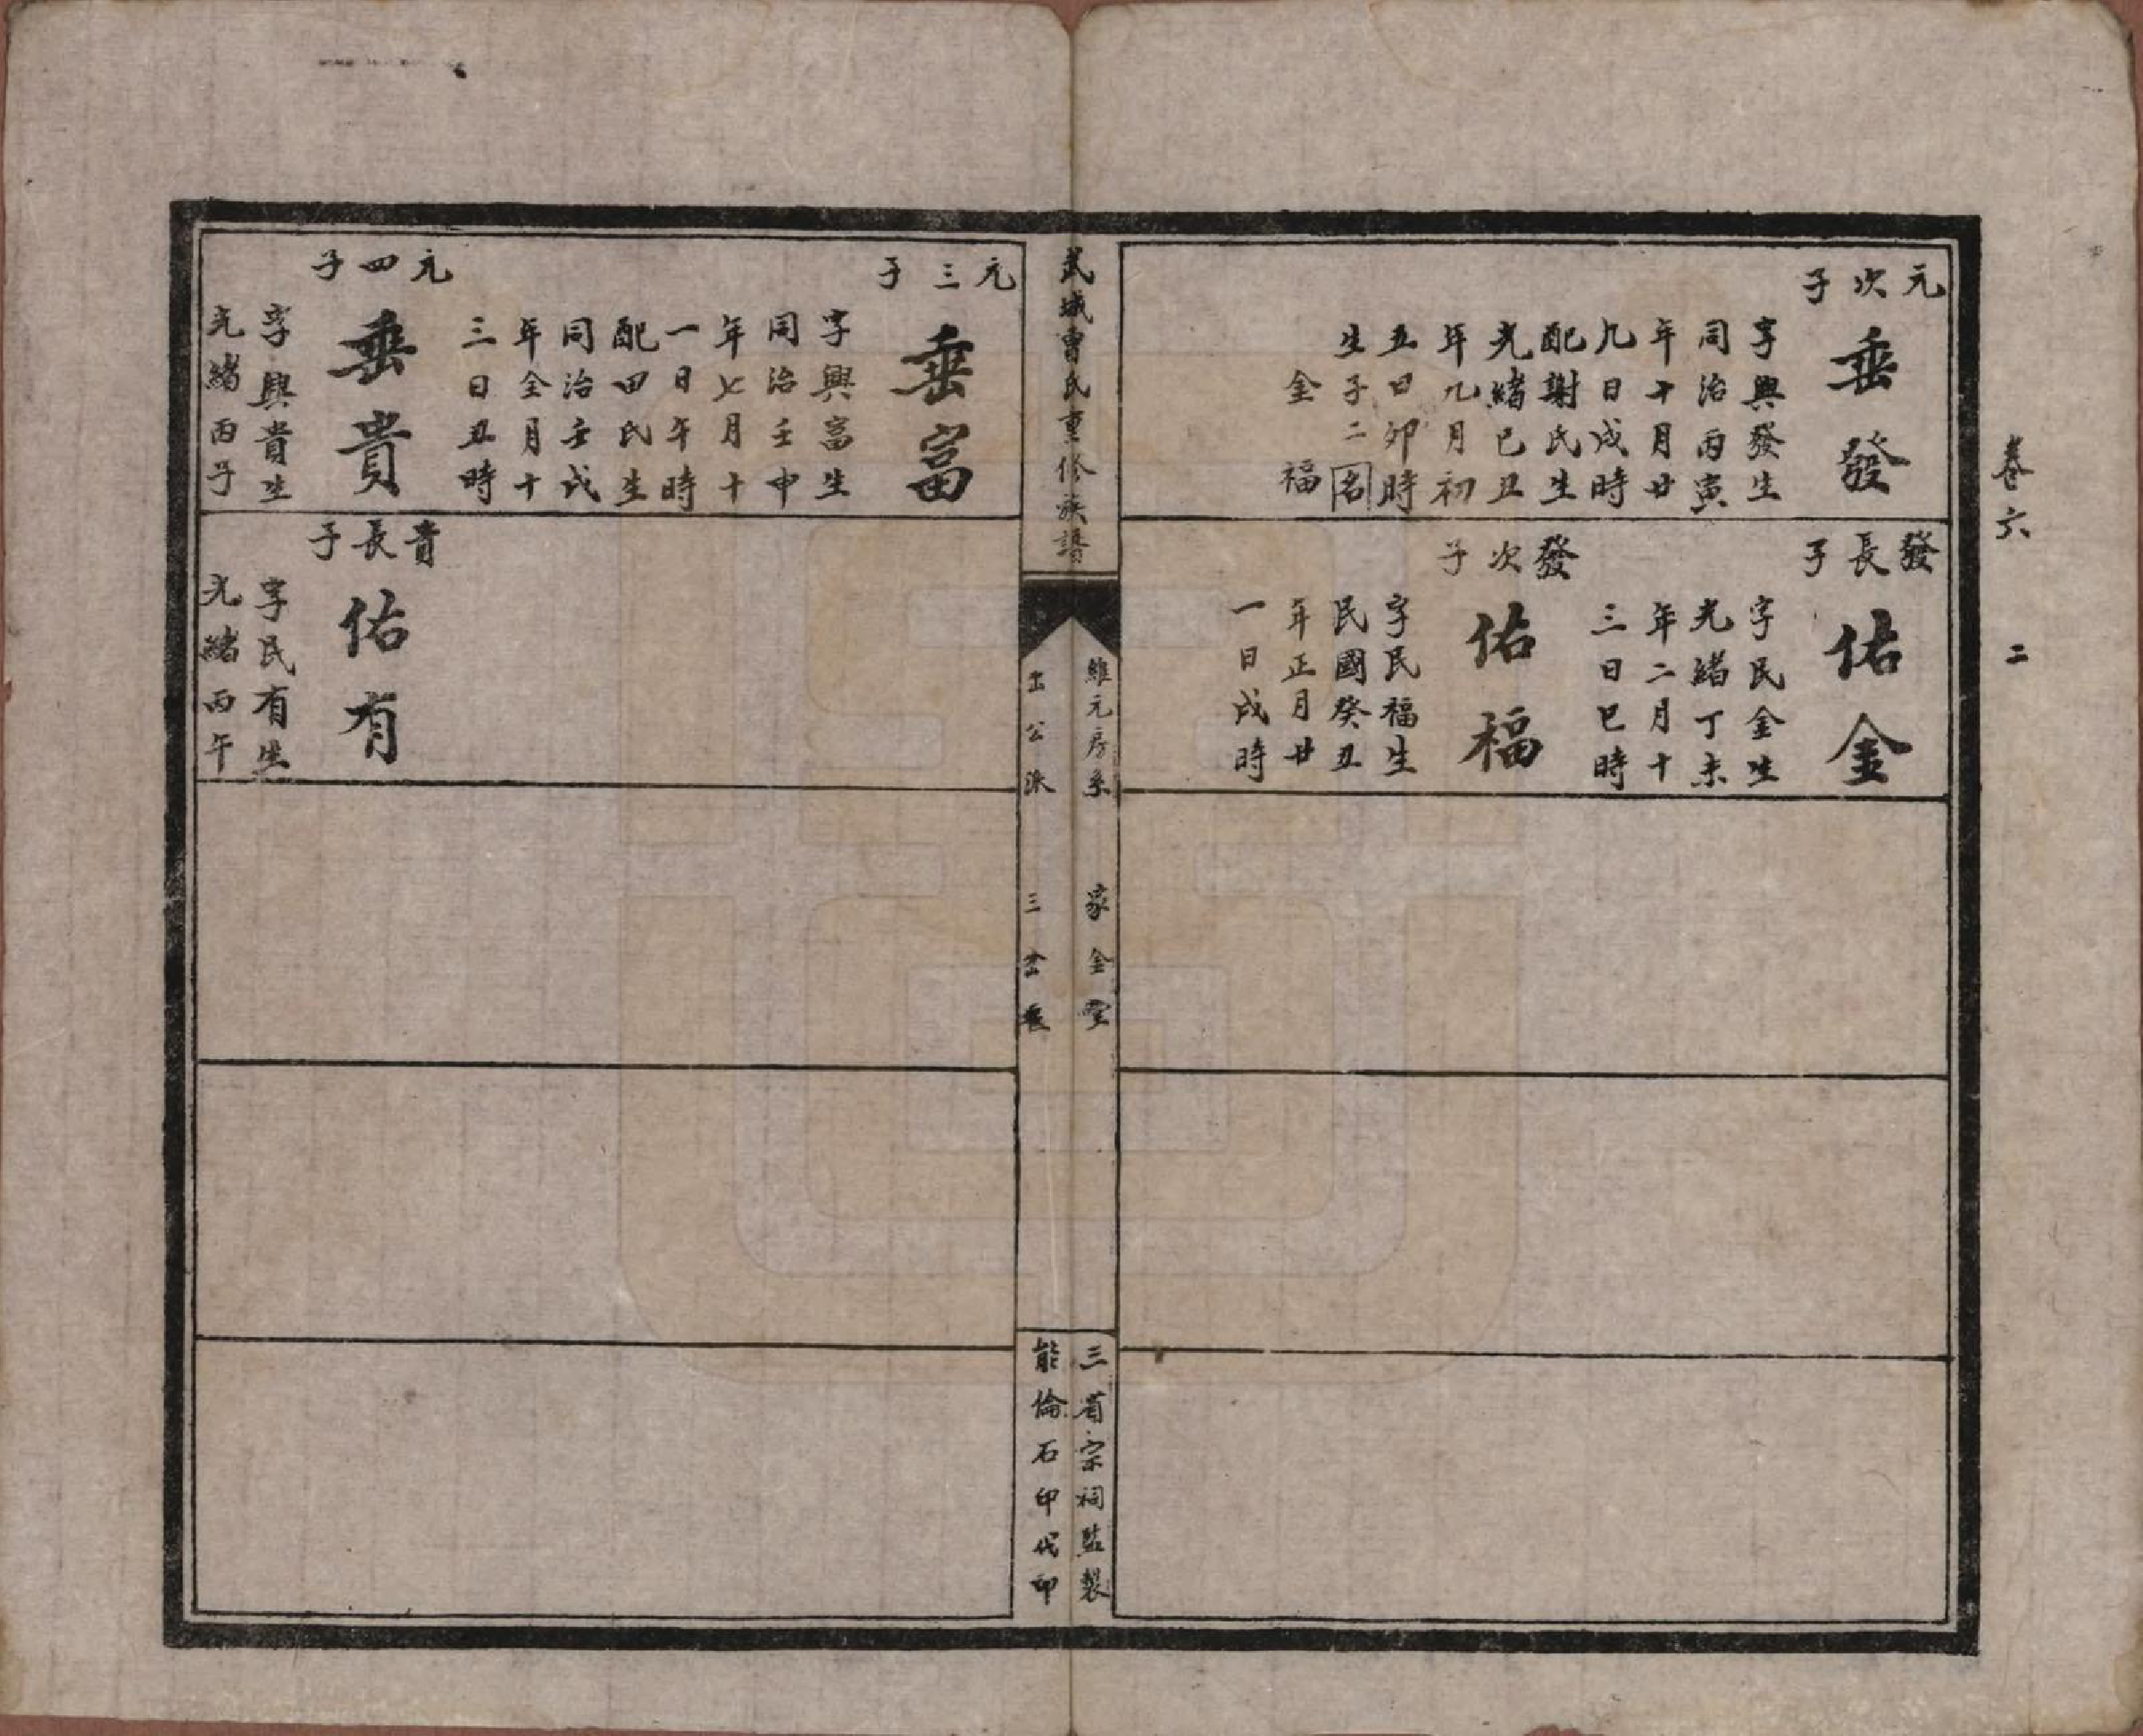 卷六　二
元次子
垂發
字興發生
同治丙寅
年十月廿
九日戌時
配謝氏生
光緒己丑
年九月初
五日卯時
生子二名
金福
發長子
佑金
字民金生
光緒丁未
年二月十
三日巳時
發次子
佑福
字民福生
民國癸丑
年正月廿
一日戌時
武城曾氏重修族譜
維元房系
出公派
家金堂
三世垂
三省宗祠監製
能倫石印代印
元三子
垂富
字興富生
同治壬申
年七月十
一日午時
配田氏生
同治壬戌
年全月十
三日丑時
元四子
垂貴
字興貴生
光緒丙子
貴長子
佑有
字民有生
光緒丙午